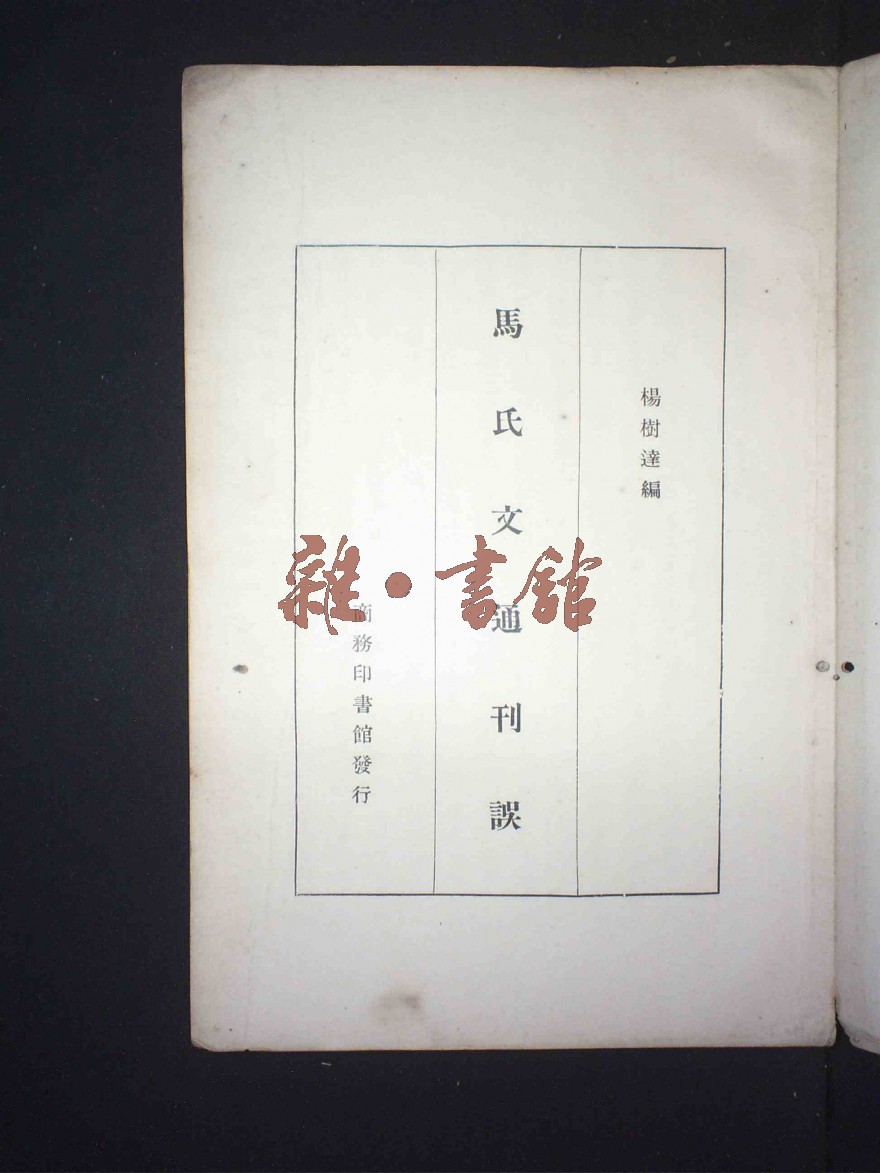 楊樹達編
馬氏文通刊誤
商務印書館發行
雜·書館